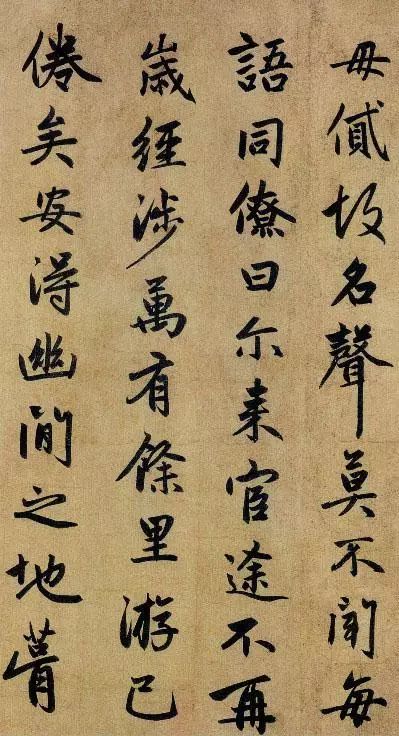 毋貸故名聲莫不聞每
語同僚曰尓来官途不再
歲經涉萬有餘里游已
倦矣安得幽閒之地葺